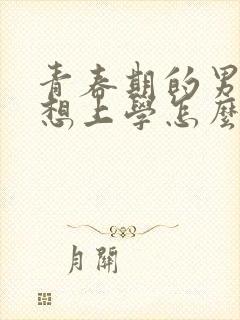 青春期的男
想上學怎麼
月關